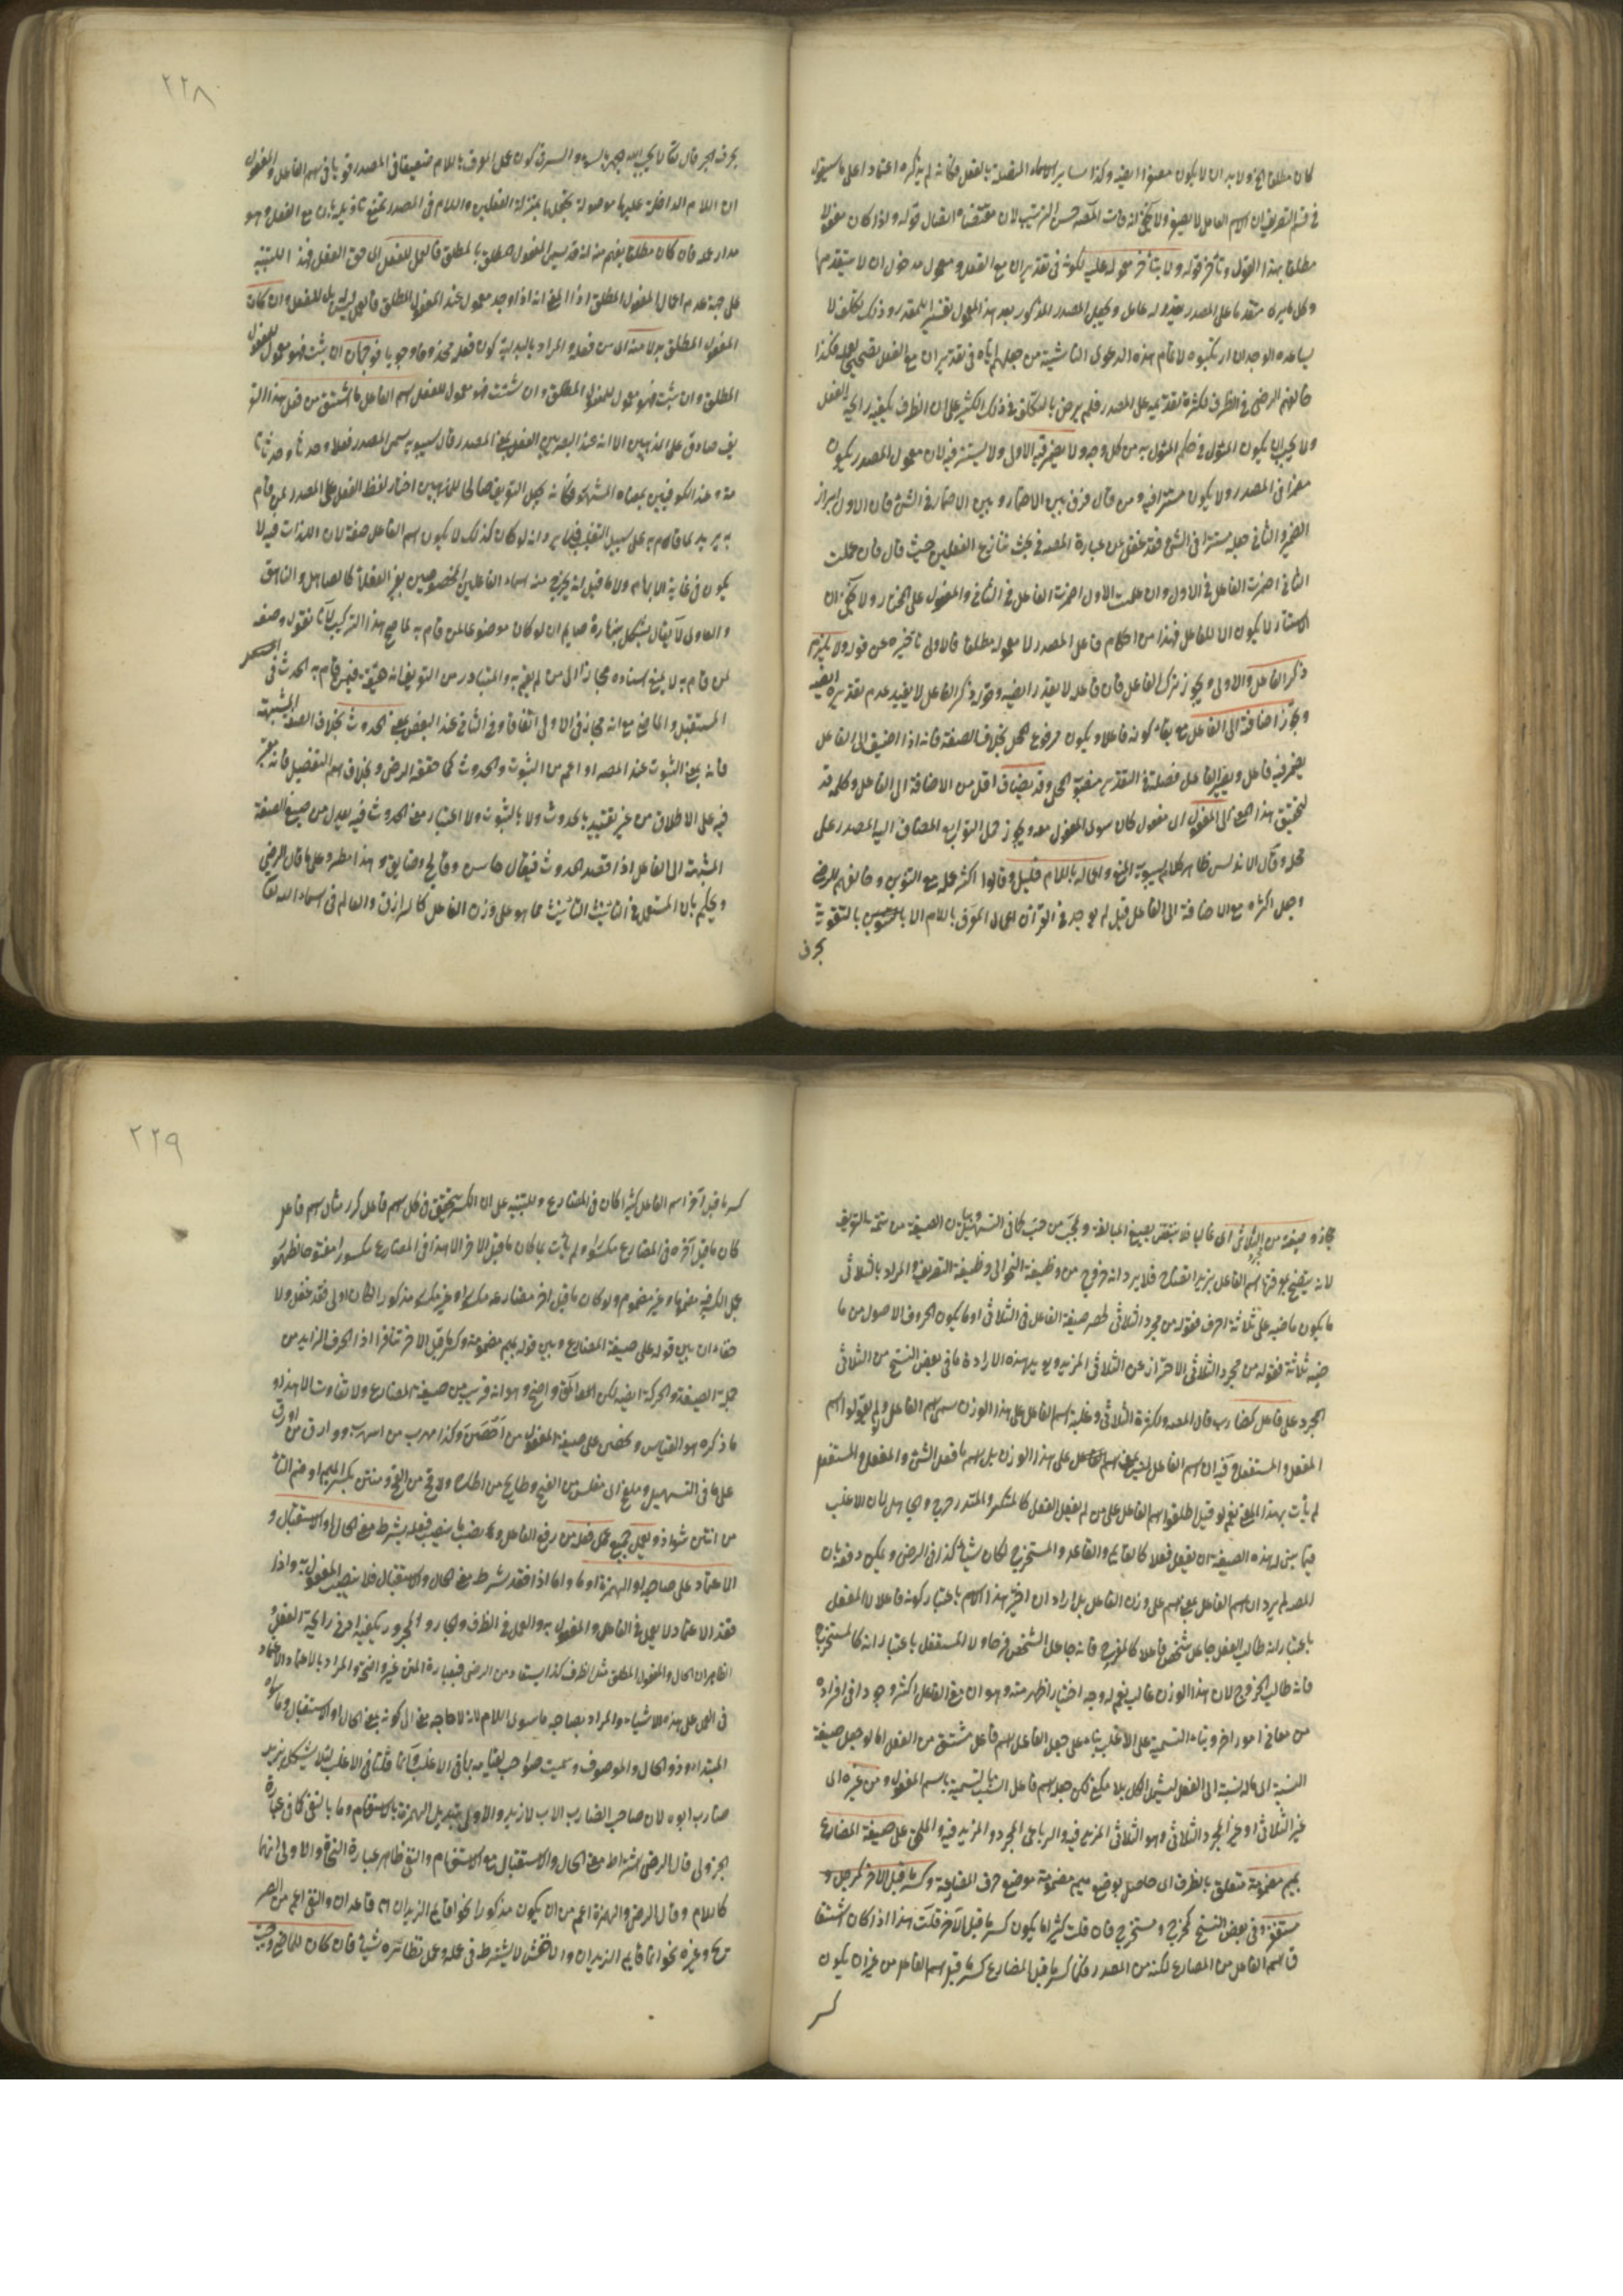 كان مطلقا الخ ولا بد ان لا يكون مصغرا ايضا وكذا ساير الاسماء المتصلة بالفعل فكانه لم يذكره اعتمادا على ما سيقوله
في التعريف ان الاسم العامل لا يصغر ولا يخفى انه فات المصنف حسن الترتيب لان مقتضاه اتصال قوله واذا كان مفعولا
مطلقا بهذا القول وتأخر قوله ولا يتأخر معموله عليه لكونه في تقدير ان مع الفعل ومعمول مدخول ان لا يتقدم عليها
وكل ما يرى متقدما على المصدر يقدر له عامل ويجعل المصدر المذكور بعد هذا المعمول تفسيرا للمقدر وذلك تكلف لا
يساعده الوجدان ارتكبوه لاتمام هذه الدعوى الناشئة من جعلهم اياه في تقدير ان مع الفعل لتصحيح عمله وكذا
خالفهم الرضى في الظرف لكثرة تقديمه على المصدر فلم يرض بالتكلف في ذلك الكثير على ان الظرف يكفيه رايحة الفعل
ولا يجب ان يكون المؤول في حكم المؤول به من كل وجه ولا يضمر فيه الاول ولا يستتر فيه لان معمول المصدر يكون
مضمرا في المصدر ولا يكون مستترا فيه ومن قال فرق بين الاضمار وبين الاضمار في الشئ فان الاول ابراز
الضمير والثاني جعله مستترا في الشئ فقد غفل عن عبارة المصنف في بحث تنازع الفعلين حيث قال فان اعملت
الثاني اضمرت الفاعل في الاول وان اعملت الاول اضمرت الفاعل في الثاني والمفعول على المختار ولا يخفى ان
الاستتار لا يكون الا للفاعل فهذا من احكام فاعل المصدر لا معموله مطلقا فالاولى تأخيره عن قوله ولا يلزم
ذكر الفاعل والاولى ويجوز ترك الفاعل فان فاعله لا يقدر ايضا وقوله ذكر الفاعل لا يفيد عدم تقديره ايضا
ويجوز اضافته الى الفاعل مع بقاء كونه فاعلا ويكون مرفوع المحل بخلاف الصفة فانه اذا اضيف الى الفاعل
يضمر فيه فاعل ويصير الفاعل فضلة في التقدير منصوب المحل وقد يضاف اقل من الاضافة الى الفاعل وكلمة قد
لتحقيق هذا المعنى الى المفعول اى مفعول كان سوى المفعول معه ويجوز حمل التوابع المضاف اليه المصدر على
محله وقال الاندلسي ظاهر كلام سيبويه المنع واعماله باللام قليل وقالوا اكثر عمله مع التنوين وخالفهم الرضى
وجعل اكثره مع الاضافة الى الفاعل قيل لم يوجد في القرآن اعمال المعرف باللام الا بالتقوية
بحرف
٢٢٨
بحرف الجر قال تعالى لا يحب الله الجهر بالسوء والسر في كون عمل المعرف باللام ضعيفا في المصدر قويا في اسم الفاعل والمفعول
ان اللام الداخلة عليها موصولة تجعلها بمنزلة الفعلين واللام في المصدر تمنع تأويله بان مع الفعل وهو
مدار عمله فان كان مطلقا يفهم منه انه قد يسمى المفعول المطلق بالمطلق فالعمل للفعل الى حق الفعل فهذا للتنبيه
على جهة عدم اعمال المفعول المطلق اذ المعنى انه اذا وجد معمول عند المفعول المطلق فالعمل ليس له بل للفعل وان كان
المفعول المطلق بدلا منه اى من فعله والمراد بالبدلية كون فعله محذوفا وجوبا فوجهان ان شئت فهو معمول للمفعول
المطلق وان شئت فهو معمول للمفعول المطلق وان شئت فهو معمول للفعل اسم الفاعل ما اشتق من فعل هذا التعر
يف صادق على المذهبين الا انه عند البصريين الفعل بمعنى المصدر قال سيبويه سمى المصدر فعلا وحدثا وحدثانا
منه وعند الكوفيين بمعناه المشهور فكانه لجعل التعريف صالحا للمذهبين اختار لفظ الفعل على المصدر لمن قام
به يريد لما قام به على سبيل التغليب فلا يرد انه لو كان كذلك لا يكون اسم الفاعل صفة لان الذات فيه لا
يكون في غاية الابهام ولا ما قيل انه يخرج منه اسماء الفاعلين المخصوصين بغير العقلاء كالصاهل والناهق
والعاوى لا يقال يشكل بنهاره صايم ان لو كان موضوعا لمن قام به لما صح هذا التركيب لانا نقول وضعه
لمن قام به لا يمنع اسناده مجازا الى من لم يقم به والمتبادر من التعريف انه حقيقة فيمن قام به الحدث في
المستقبل والماضي مع انه مجاز في الاولى اتفاقا وفي الثاني عند البعض بمعنى الحدوث بخلاف الصفة المشبهة
فانه بمعنى الثبوت عند المصنف او اعم من الثبوت والحدوث كما حققه الرضى وبخلاف اسم التفضيل فانه معتبر
فيه على الاطلاق من غير تقييد بالحدوث ولا بالثبوت ولا اعتبار معنى الحدوث فيه يعدل من صيغ الصفة
المشبهة الى الفاعل اذا قصد الحدوث فيقال حاسن وقابح وضايق وهذا مطرد على ما قال الرضى
ويحكم بان المستعمل في الثابت الثابت مما هو على وزن الفاعل كالرازق والعالم في اسماء الله تعالى
مجاز وصيغته من الثلاثى اى غالبا فلا ينتقض بصيغ المبالغة وبحب من حب كما في التسهيل وبيان الصيغة من تتمة التعريف
لانه يتضح بمعرفتها اسم الفاعل مزيد اتضاح فلا يرد انه خروج من وظيفة النحو الى وظيفة التصريف والمراد بالثلاثى
ما يكون ماضيه على ثلاثة احرف فقوله من مجرد الثلاثى لحصر صيغة الفاعل في الثلاثى او ما يكون الحروف الاصول من ما
ضيه ثلاثة فقوله من مجرد الثلاثى الاحتراز عن الثلاثى المزيد ويؤيد هذه الارادة ما في بعض النسخ من الثلاثى
المجرد على فاعل كضارب قال المصنف ولكثرة الثلاثى وغلبة اسم الفاعل على هذا الوزن سمى اسم الفاعل ولم يقولوا اسم
المفعل والمستفعل وفيه ان اسم الفاعل ليس بمعنى اسم الفاعل على هذا الوزن بل اسم ما فعل الشئ والمفعل والمستفعل
لم يأت بهذا المعنى نعم لو قيل اطلقوا اسم الفاعل على من لم يفعل الفعل كالمنكسر والمتدحرج والجاهل لان الاغلب
فيما بنى له هذه الصيغة ان يفعل فعلا كالقايم والقاعد والمستخرج لكان شيئا كذا في الرضى ويمكن دفعه بان
المصنف لم يرد ان اسم الفاعل بمعنى اسم على وزن الفاعل بل اراد ان اختير هذا الاسم باعتبار كونه فاعلا لا المفعل
باعتبار انه طالب الفعل جاعل شخص فاعلا كالمفرح فانه جاعل الشخص فرحا ولا المستفعل باعتبار انه كالمستخرج
فانه طالب الخروج لان هذا الوزن غالب نعم له وجه اختيار اظهر منه وهو ان معنى الفاعل اكثر وجودا في افراده
من معانى امور اخر وبناء التسمية على الاغلب بناء على جعل الفاعل اسم فاعل مشتق من الفعل اما لو جعل صيغة
النسبة اى ما له نسبة الى الفعل ليشمل الكل بلا مكلف لكن جعله اسم فاعل انسب بالتسمية باسم المفعول ومن غيره اى
غير الثلاثى او غير المجرد الثلاثى وهو الثلاثى المزيد فيه والرباعى المجرد والمزيد فيه والملحق على صيغة المضارع
بميم مضمومة متعلق بالظرف اى حاصل بوضع ميم مضمومة موضع حرف المضارعة وكسر ما قبل الاخر كمدخل و
مستغفر وفي بعض النسخ كمخرج ومستخرج فان قلت كثيرا ما يكون كسر ما قبل الاخر قلت هذا اذا كان اشتقا
ق اسم الفاعل من المضارع لكنه من المصدر فكما كسر ما قبل المضارع كسر ما قبل اسم الفاعل من غير ان يكون
كسر
٢٢٩
كسر ما قبل آخر اسم الفاعل كسرا كان في المضارع وللتنبيه على ان الكسر يتحقق في كل اسم فاعل كرر مثال اسم فاعل
كان ما قبل آخره في المضارع مكسورا ولم يأت بما كان ما قبل الاخر الا هذا في المضارع مكسورا مفتوحا لظهور
جعل الكسر فيه مضمها وغير مضموم ولو كان ما قبل اخر مضارعه مكسورا وغير مكسور مذكورا لكان اولى فقد غفل ولا
خفاء ان بين قوله على صيغة المضارع وبين قوله بميم مضمومة وكسر ما قبل الاخر تنافرا اذ الحرف الزايد من
جملة الصيغة والحركة ايضا لكن المعنى المراد واضح وهو انه قريب من صيغة المضارع ولا تفاوت الا بهذا و
ما ذكره هو القياس ومحصن على صيغة المفعول من احصن وكذا مسهب من اسهب ووارق من اورق
على ما في التسهيل وملفج اى مفلس من الفج وطايح من اطاح ولاقح من القح ومنتن بكسر الميم او ضم التاء
من انتن شواذ ويعمل جميع عمل فعله من رفع الفاعل ونصب ما ينصب فعله بشرط معنى الحال او الاستقبال و
الاعتماد على صاحبه او الهمزة او ما واما اذا فقد شرط معنى الحال والاستقبال فلا ينصب المفعول به واذا
فقد الاعتماد لا يعمل في الفاعل والمفعول به والعمل في الظرف والجار والمجرور يكفيه ادنى رايحة الفعل و
الظاهر ان الحال والمفعول المطلق مثل الظرف كذا يستفاد من الرضى فعبارة المتن غير واضحة والمراد بالاعتماد الاعتماد
في العمل على هذه الاشياء والمراد بصاحبه ما سوى اللام لانه لا حاجة معه الى كونه بمعنى الحال او الاستقبال وما سواه
المبتدا وذو الحال والموصوف وسميت صواحب لقيامه بها في الاغلب وانما قلنا في الاغلب لئلا يشكل بزيد
ضارب ابوه لان صاحب الضارب الاب لا زيد والاولى تبديل الهمزة بالاستفهام وما بالنفى كما في عبارة
الجزولى قال الرضى اشتراط معنى الحال والاستقبال مع الاستفهام والنفى ظاهر عبارة النحاة والاولى انهما
كاللام وقال الرضى والهمزة اعم من ان يكون مذكورا نحو اقايم الزيدان او قاعدان والنفى اعم من الصر
يح وغيره نحو انما قايم الزيدان والاخفش لا يشترط في عمله وعمل نظائره شيئا فان كان للماضى وجبت